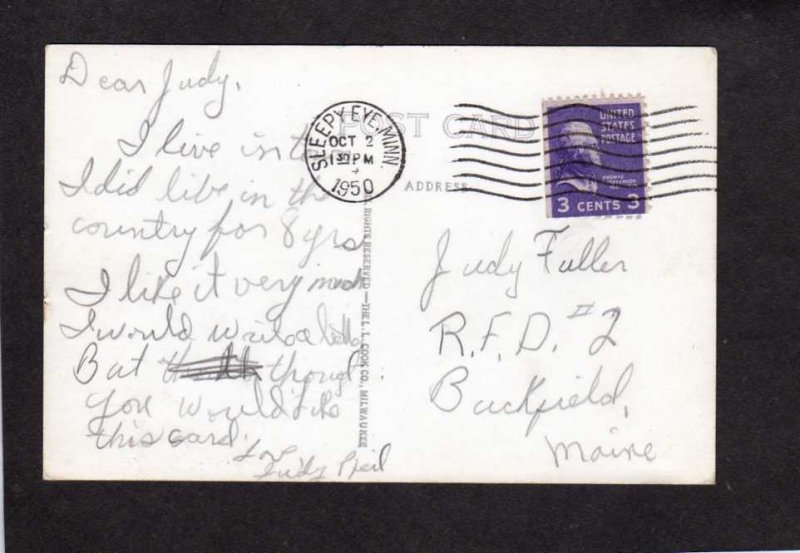 Dear Judy,
I live in t
I did live in the
country for 8 yrs
I like it very much
I would write a letter
But thought
you would like
this card.
Judy Pfeil
POST CARD
ADDRESS
SLEEPY EYE, MINN.
OCT 2
1 30 PM
1950
UNITED
STATES
POSTAGE
THOMAS JEFFERSON
3 CENTS 3
RIGHTS RESERVED—THE L. L. COOK CO., MILWAUKEE
Judy Fuller
R.F.D. #2
Buckfield,
Maine